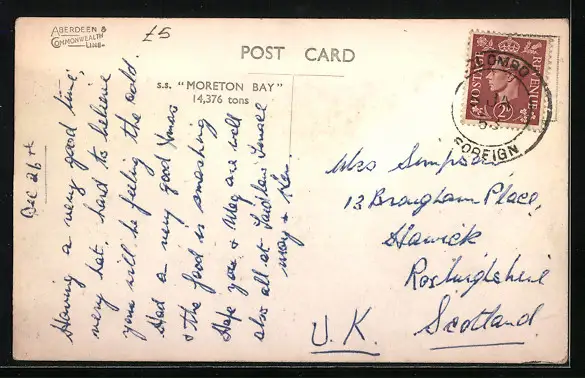 ABERDEEN &
COMMONWEALTH
LINE
£5
POST CARD
S.S. "MORETON BAY"
14,376 tons
POSTAGE
REVENUE
2D
COLOMBO
FOREIGN
Dec 26th
Having a very good time,
very hot, hard to believe
you will be feeling the cold.
Had a very good Xmas
& the food is smashing
Hope you & Meg are well
also all at
May & Ken.
Mrs Simpson
13 Brougham Place,
Hawick
Roxburghshire
Scotland.
U.K.